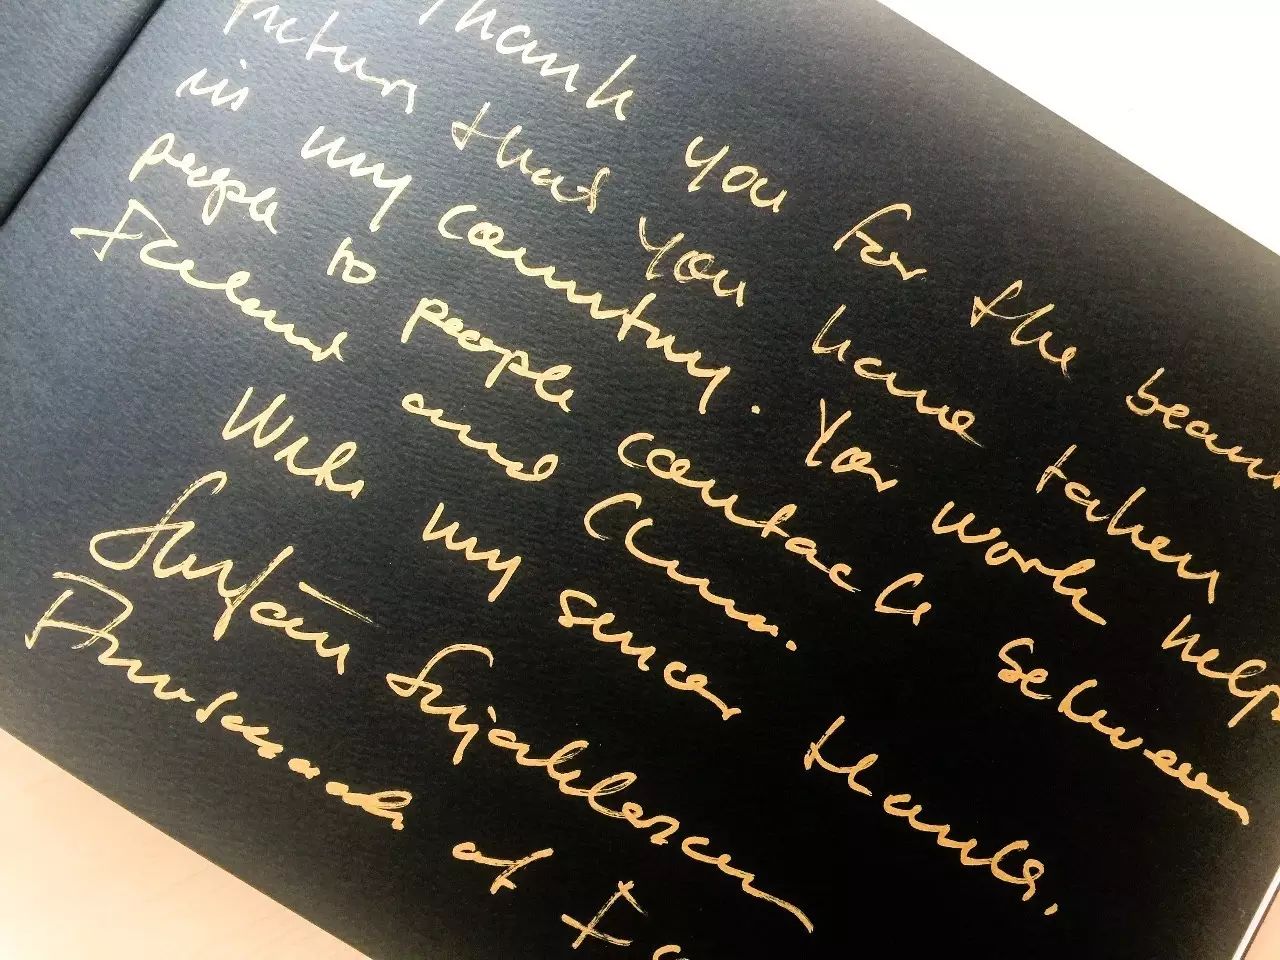 Thank you for the beauti
pictures that you have taken
in my country. Your work helps
people to people contacts between
Iceland and China.
With my sincer thanks.
Stefán Skjaldarson
Ambassador of Ic